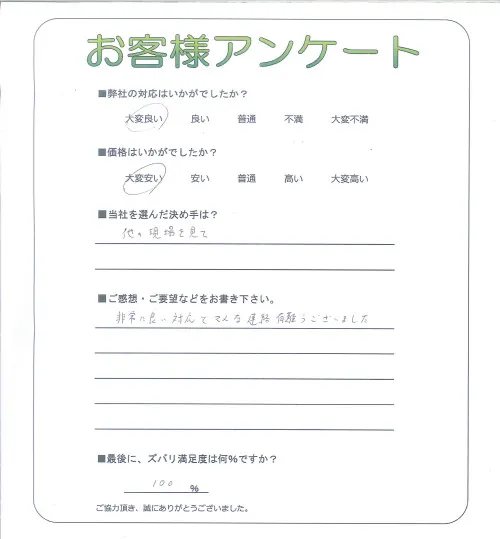 お客様アンケート
■弊社の対応はいかがでしたか？
大変良い 良い 普通 不満 大変不満
■価格はいかがでしたか？
大変安い 安い 普通 高い 大変高い
■当社を選んだ決め手は？
他の現場を見て
■ご感想・ご要望などをお書き下さい。
非常に良い対応でマメな連絡有難うございました
■最後に、ズバリ満足度は何％ですか？
100 ％
ご協力頂き、誠にありがとうございました。